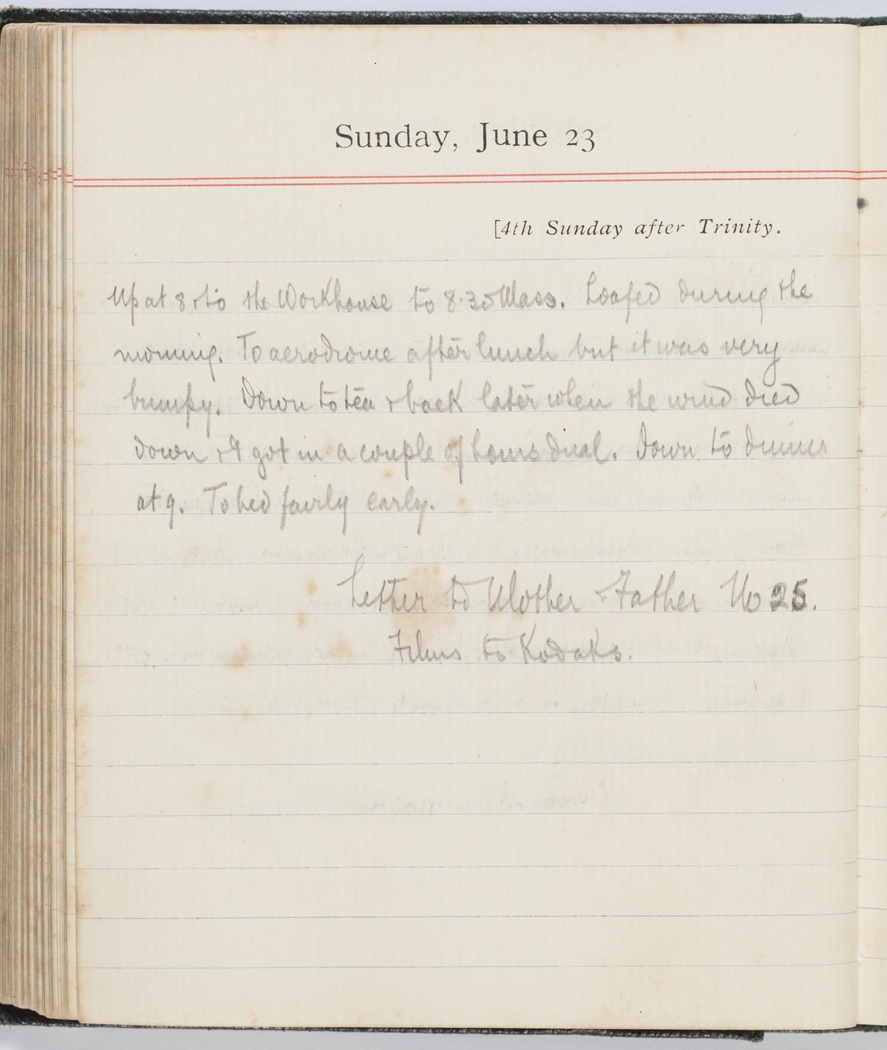 Sunday, June 23
[4th Sunday after Trinity.
Up at 8 & to the Workhouse to 8.30 Mass. Loafed during the
morning. To aerodrome after lunch but it was very
bumpy. Down to tea & back later when the wind died
down & I got in a couple of hours dual. Down to dinner
at 9. To bed fairly early.
Letter to Mother & Father No 25.
Films to Kodaks.